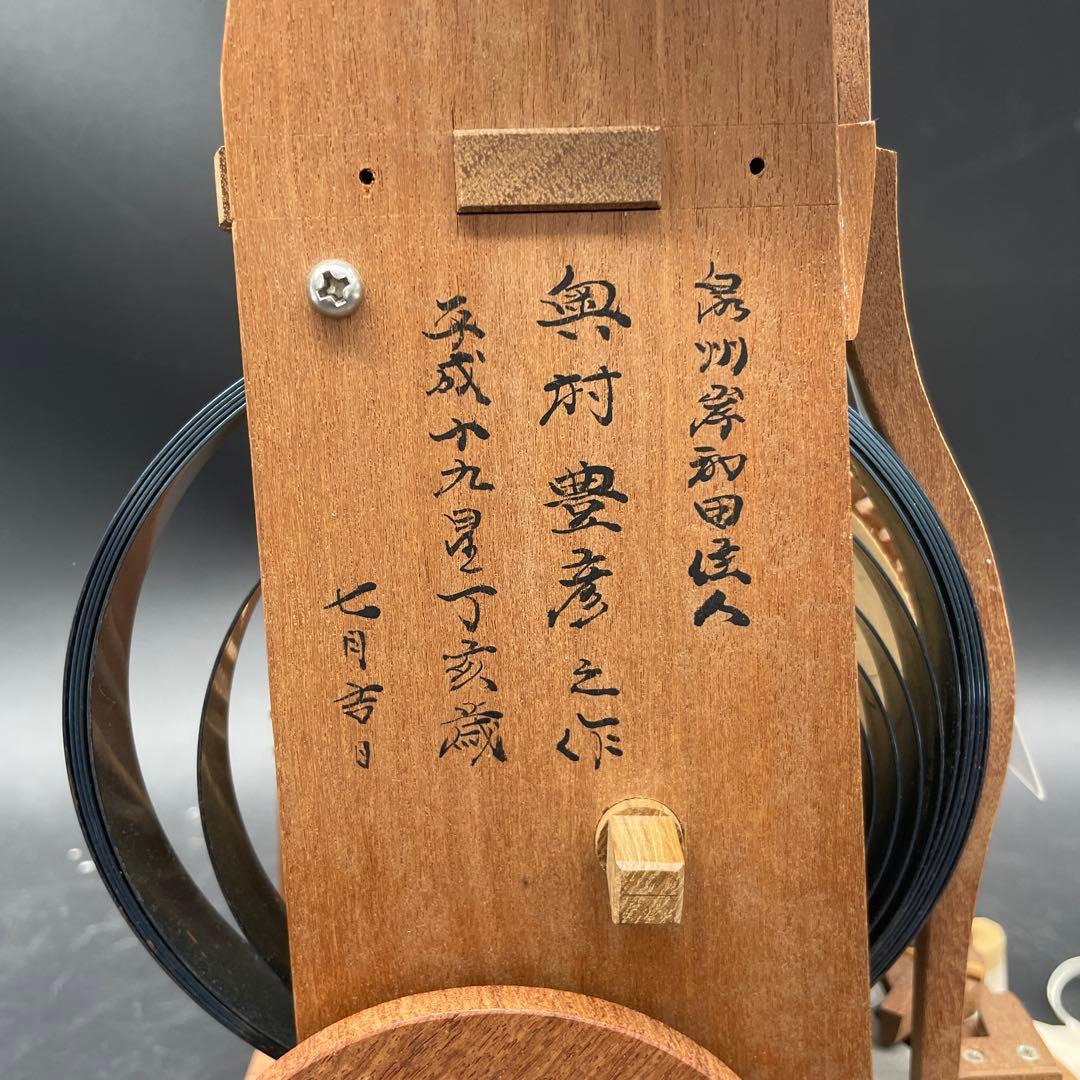 泉州岸和田住人
奥村豊彦之作
平成十九星丁亥歳
七月吉日